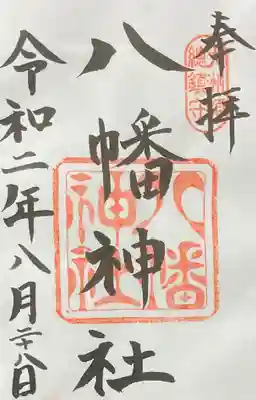 奉拝
八幡神社
令和二年八月二十八日
八幡
神社
總鎮守